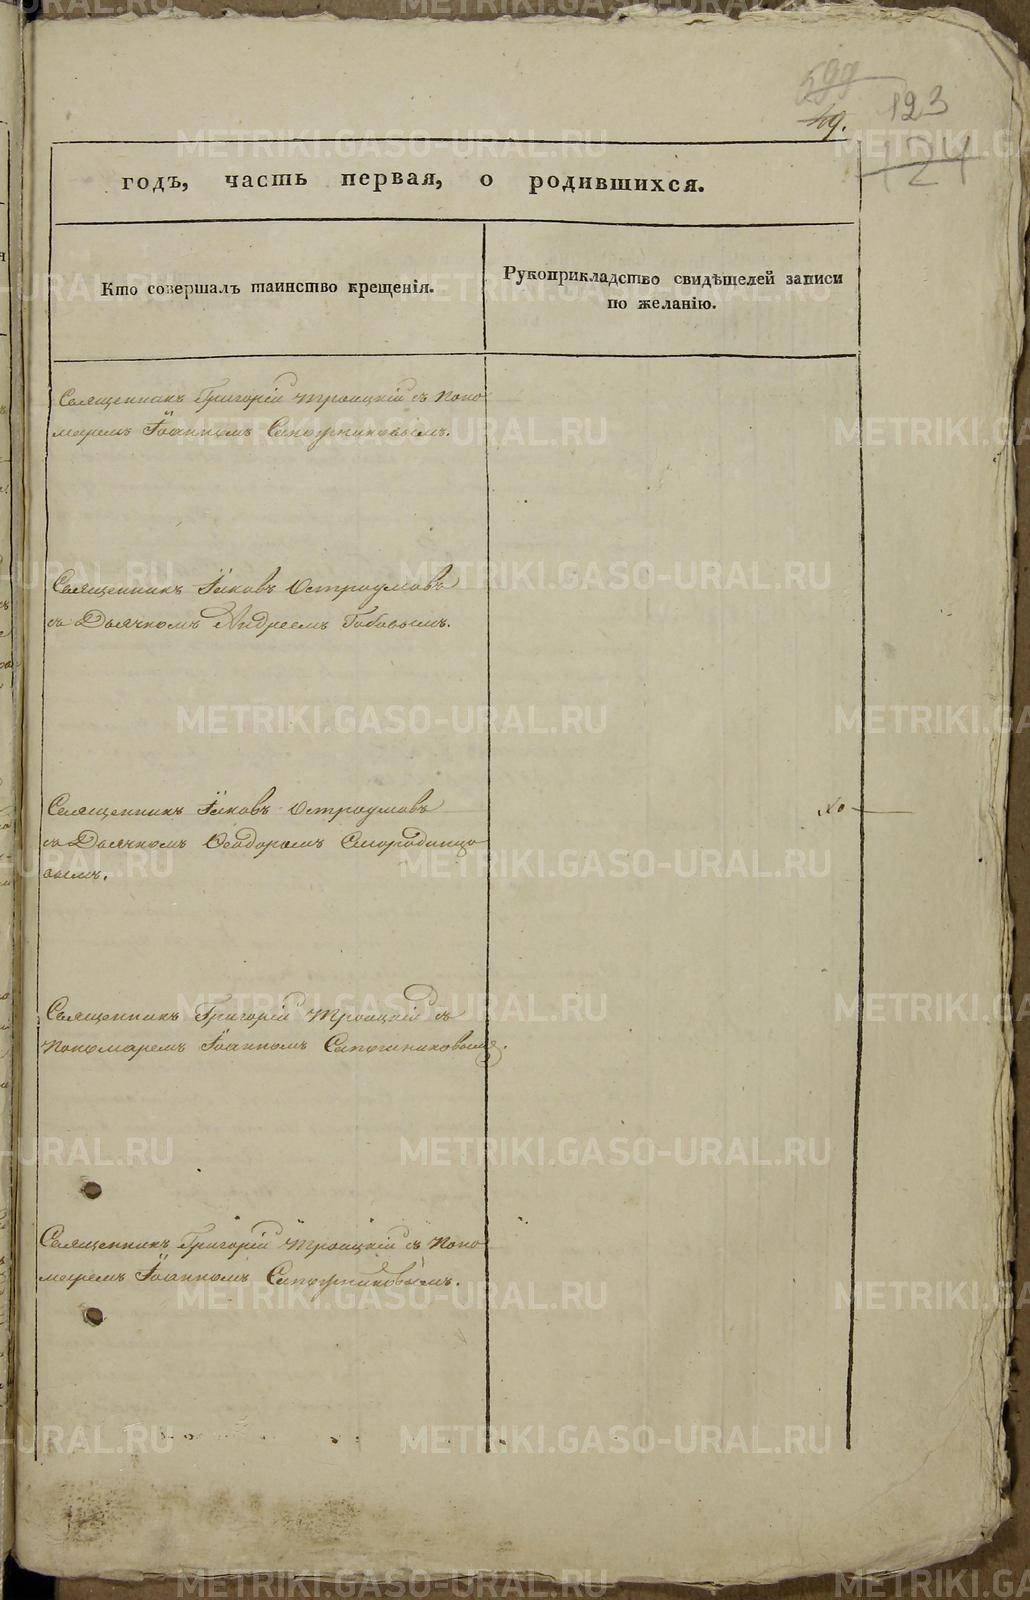 599
49.
123
121
годъ, часть первая, о родившихся.
Кто совершалъ таинство крещенія.
Рукоприкладство свидѣтелей записи
по желанію.
Священникъ Григорій Троицкій съ Поно
маремъ Іоанномъ Сапожниковымъ.
Священникъ Іаковъ Остроумовъ
съ Дьячкомъ Андреемъ Бабовымъ.
Священникъ Іаковъ Остроумовъ
съ Дьячкомъ Ѳеодоромъ Смородинцо
вымъ.
Священникъ Григорій Троицкій съ
Пономаремъ Іоанномъ Сапожниковымъ.
Священникъ Григорій Троицкій съ Поно
маремъ Іоанномъ Сапожниковымъ.
METRIKI.GASO-URAL.RU